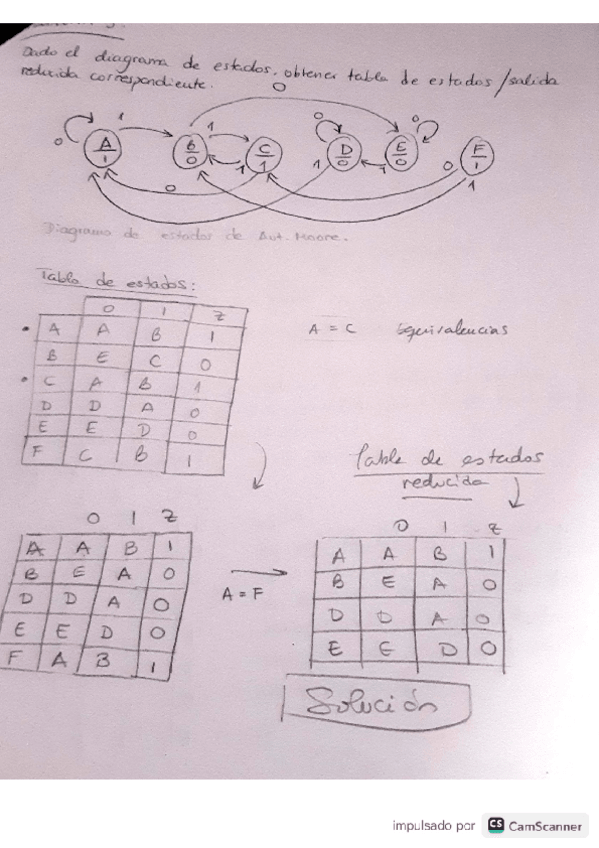 Dado el diagrama de estados, obtener tabla de estados/salida
reducida correspondiente.
0
1 1 0 0
0 A/1 B/0 C/1 D/0 E/0 F/1
1 1 1 0
0 1
Diagrama de estados de Aut. Moore.
Tabla de estados:
0 1 Z
A A B 1
B E C 0
C A B 1
D D A 0
E E D 0
F C B 1
A = C Equivalencias
Tabla de estados
reducida
0 1 Z
A A B 1
B E A 0
D D A 0
E E D 0
F A B 1
A = F
0 1 Z
A A B 1
B E A 0
D D A 0
E E D 0
Solución
impulsado por CS CamScanner